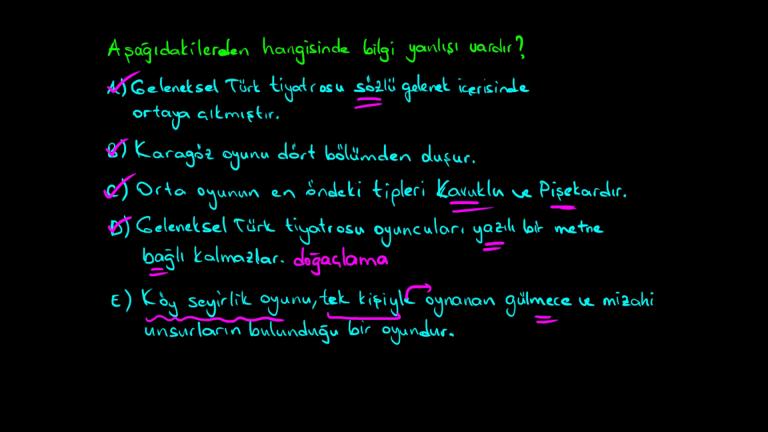 Aşağıdakilerden hangisinde bilgi yanlışı vardır?
A) Geleneksel Türk tiyatrosu sözlü gelenek içerisinde
ortaya çıkmıştır.
B) Karagöz oyunu dört bölümden oluşur.
C) Orta oyunun en öndeki tipleri Kavuklu ve Pişekardır.
D) Geleneksel Türk tiyatrosu oyuncuları yazılı bir metne
bağlı kalmazlar. doğaçlama
E) Köy seyirlik oyunu, tek kişiyle oynanan gülmece ve mizahi
unsurların bulunduğu bir oyundur.